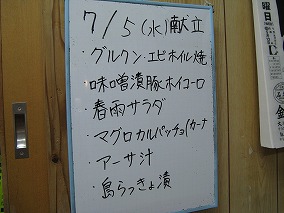 7/5(水)献立
・グルクン・エビホイル焼
味噌漬豚ホイコーロ
・春雨サラダ
・マグロカルパッチョ(カーナ
・アーサ汁
・島らっきょ漬
曜日